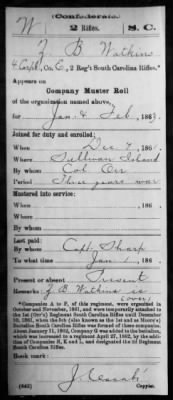 (Confederate.)
W 2 Rifles. S. C.
J. B. Watkins
4 Corpl, Co. E, 2 Reg't South Carolina Rifles.*
Appears on
Company Muster Roll
of the organization named above,
for Jan & Feb, 1863.
Joined for duty and enrolled:
When Dec 7, 186
Where Sullivan Island
By whom Col Orr
Period Three years war
Mustered into service:
When , 186 .
Where
By whom
Last paid:
By whom Capt Sharp
To what time Jan 1, 186
Present or absent Present
Remarks: J. B. Watkins is
(over)
*Companies A to F, of this regiment, were organized in
October and November, 1861, and were temporarily attached to
the 1st (Orr's) Regiment South Carolina Rifles until December
Battalion South Carolina Rifles was formed of these companies.
About January 11, 1862, Company G was added to the battalion,
which was increased to a regiment April 27, 1862, by the
addition of Companies H, K and L, and designated the 2d Regiment
South Carolina Rifles.
Book mark:
(642)
Copyist.